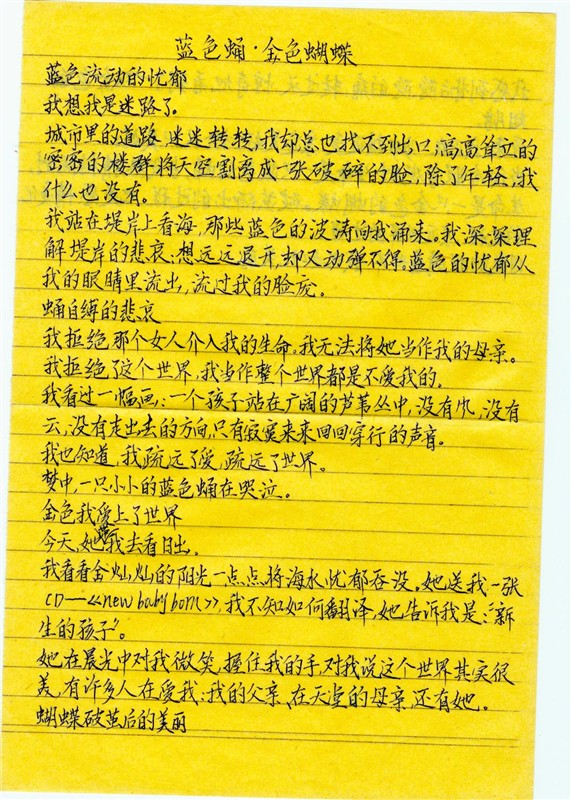 蓝色蛹·金色蝴蝶
蓝色流动的忧郁
我想我是迷路了。
城市里的道路迷迷转转,我却总也找不到出口;高高耸立的
密密的楼群将天空割离成一张破碎的脸,除了年轻,我
什么也没有。
我站在堤岸上看海,那些蓝色的波涛向我涌来。我深深理
解堤岸的悲哀:想远远退开,却又动弹不得。蓝色的忧郁从
我的眼睛里流出,流过我的脸庞。
蛹自缚的悲哀
我拒绝那个女人介入我的生命。我无法将她当作我的母亲。
我拒绝了这个世界,我当作整个世界都是不爱我的。
我看过一幅画:一个孩子站在广阔的芦苇丛中,没有风,没有
云,没有走出去的方向,只有寂寞来来回回穿行的声音。
我也知道,我疏远了爱,疏远了世界。
梦中,一只小小的蓝色蛹在哭泣。
金色我爱上了世界
今天,她带我去看日出。
我看着金灿灿的阳光一点点将海水忧郁吞没。她送我一张
CD—《new baby born》,我不知如何翻译,她告诉我是:“新
生的孩子”。
她在晨光中对我微笑,握住我的手,对我说这个世界其实很
美,有许多人在爱我:我的父亲、在天堂的母亲,还有她。
蝴蝶破茧后的美丽